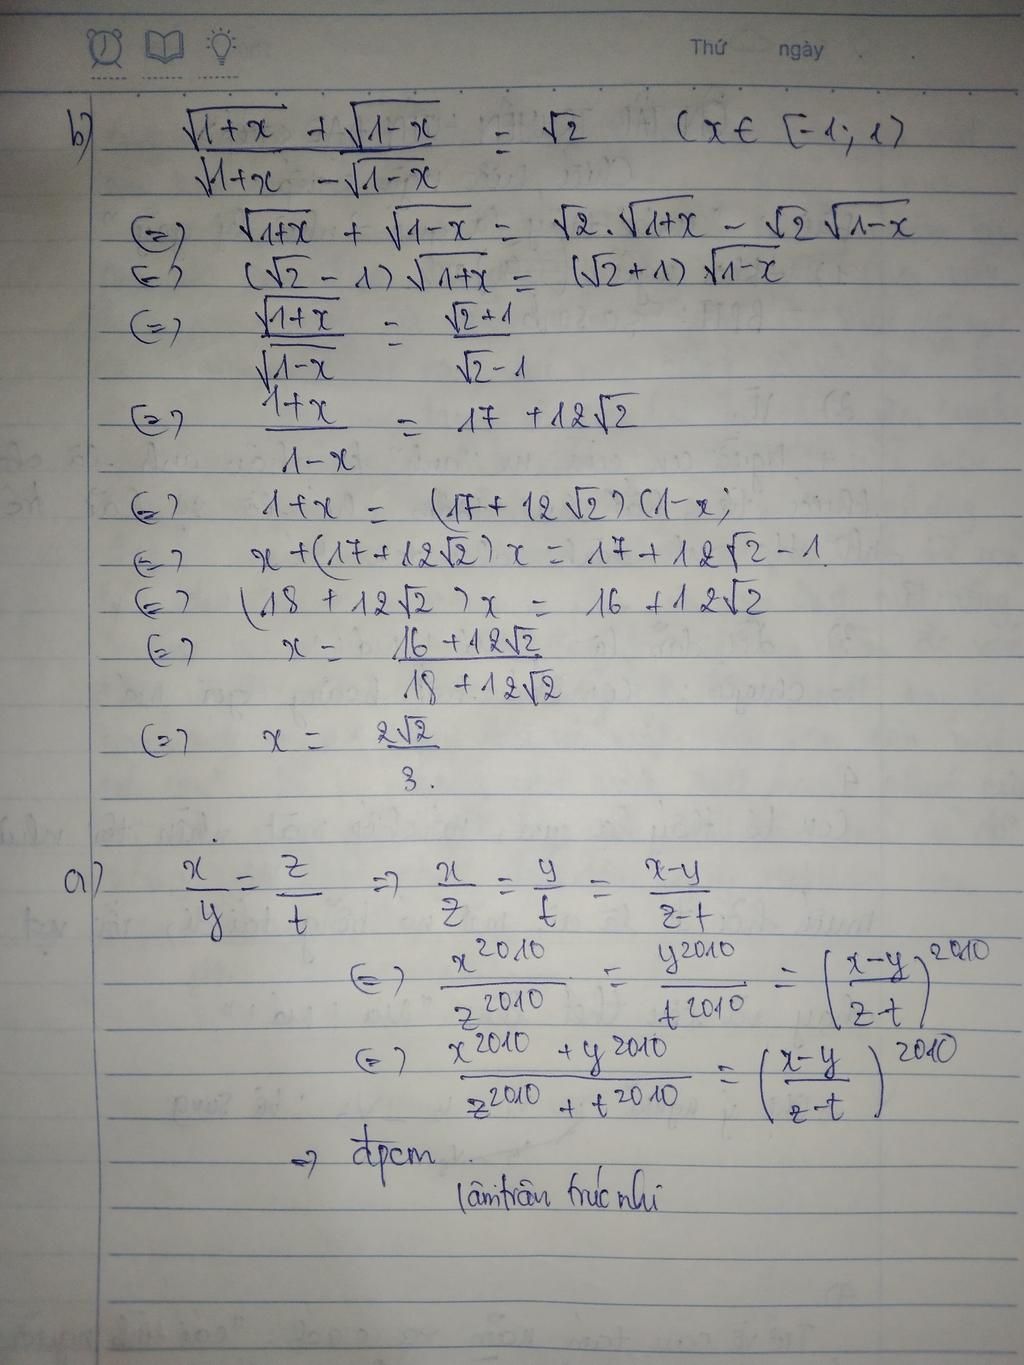 Thứ ngày
b) (√(1+x) + √(1-x)) / (√(1+x) - √(1-x)) = √2 (x ∈ [-1; 1)
(=) √(1+x) + √(1-x) = √2.√(1+x) - √2 √(1-x)
(=) (√2 - 1) √(1+x) = (√2 + 1) √(1-x)
(=) √(1+x) / √(1-x) = (√2+1) / (√2-1)
(=) (1+x) / (1-x) = 17 + 12√2
(=) 1+x = (17 + 12√2) (1-x)
(=) x + (17 + 12√2) x = 17 + 12√2 - 1
(=) (18 + 12√2) x = 16 + 12√2
(=) x = (16 + 12√2) / (18 + 12√2)
(=) x = 2√2 / 3.
a) x/y = z/t => x/z = y/t = (x-y)/(z-t)
(=) x^2010 / z^2010 = y^2010 / t^2010 = ((x-y)/(z-t))^2010
(=) (x^2010 + y^2010) / (z^2010 + t^2010) = ((x-y)/(z-t))^2010
=> đpcm.
trúc nhi